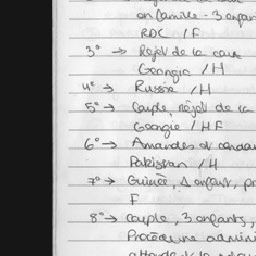 en famille - 3 enfan
RDC / F
3° → Rejet de la
Georgie / H
4° → Russie / H
5° → Couple, rejet de la
Georgie / HF
6° → Amandes et
Pakistan / H
7° → Guinée, 1 enfant, pr
F
8° → couple, 3 enfants,